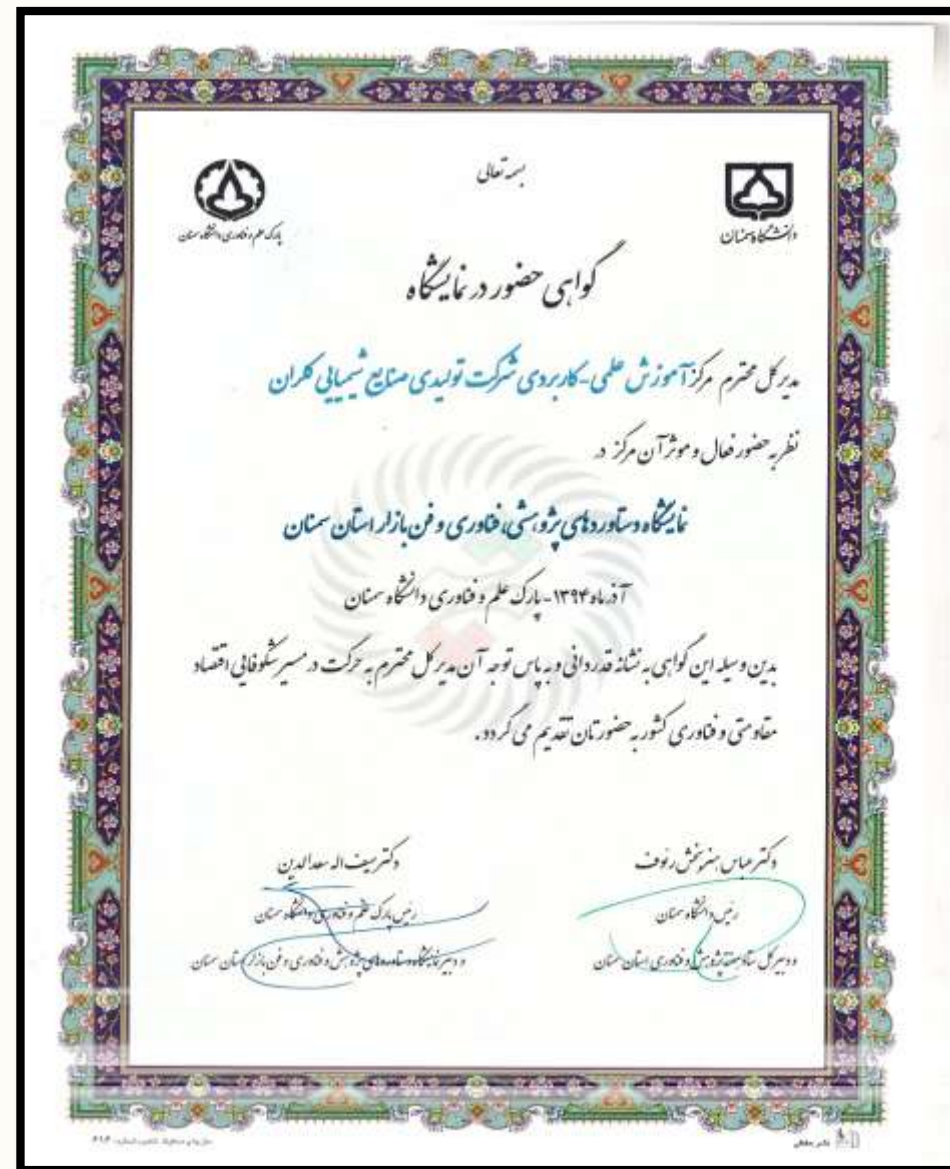 بسمه تعالی
دانشگاه سمنان
پارک علم و فناوری دانشگاه سمنان
گواهی حضور در نمایشگاه
مدیر کل محترم مرکز آموزش علمی-کاربردی شرکت تولیدی صنایع شیمیایی کلران
نظر به حضور فعال و موثر آن مرکز در
نمایشگاه دستاوردهای پژوهشی، فناوری و فن بازار استان سمنان
آذر ماه ۱۳۹۴-پارک علم و فناوری دانشگاه سمنان
بدین وسیله این گواهی به نشانه قدردانی و به پاس توجه آن مدیر کل محترم به حرکت در مسیر شکوفایی اقتصاد
مقاومتی و فناوری کشور به حضورتان تقدیم می گردد.
دکتر عباس هنربخش رئوف
رئیس دانشگاه سمنان
و دبیر کل ستاد هفته پژوهش و فناوری استان سمنان
دکتر سیف اله سعدالدین
رئیس پارک علم و فناوری دانشگاه سمنان
و دبیر نمایشگاه دستاوردهای پژوهش و فناوری و فن بازار استان سمنان